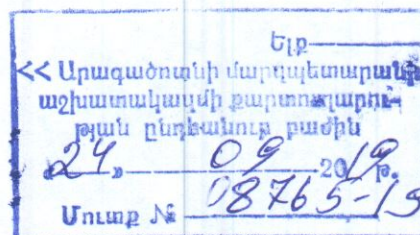 Ելք
<< Արագածոտնի մարզպետարանի
աշխատակազմի քարտուղարու-
թյան ընդհանուր բաժին
«24» 09 2019 թ.
Մուտք № 08765-19